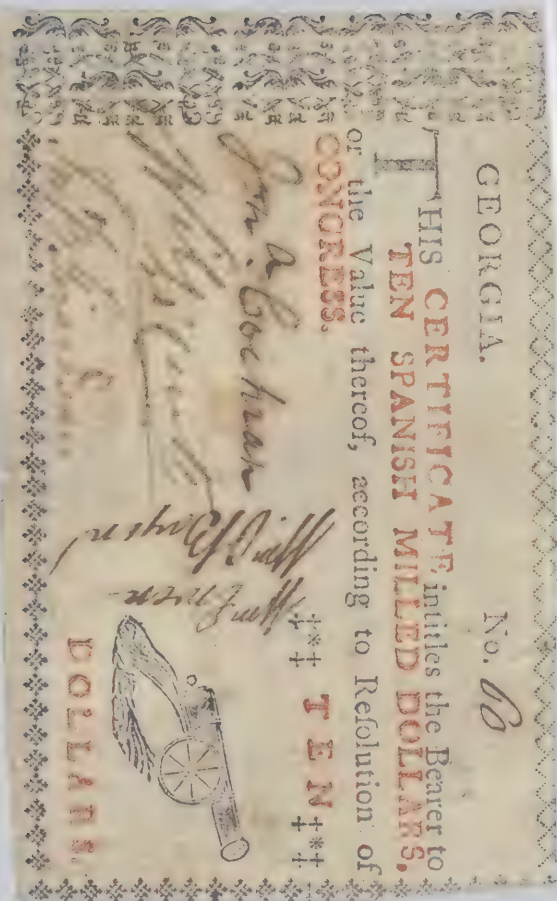 GEORGIA. No. 60
THIS CERTIFICATE, intitles the Bearer to
TEN SPANISH MILLED DOLLARS,
or the Value thereof, according to Reſolution of
CONGRESS.
‡*‡ TEN ‡*‡
DOLLARS.
Wm O'Bryen
Wm Ewen